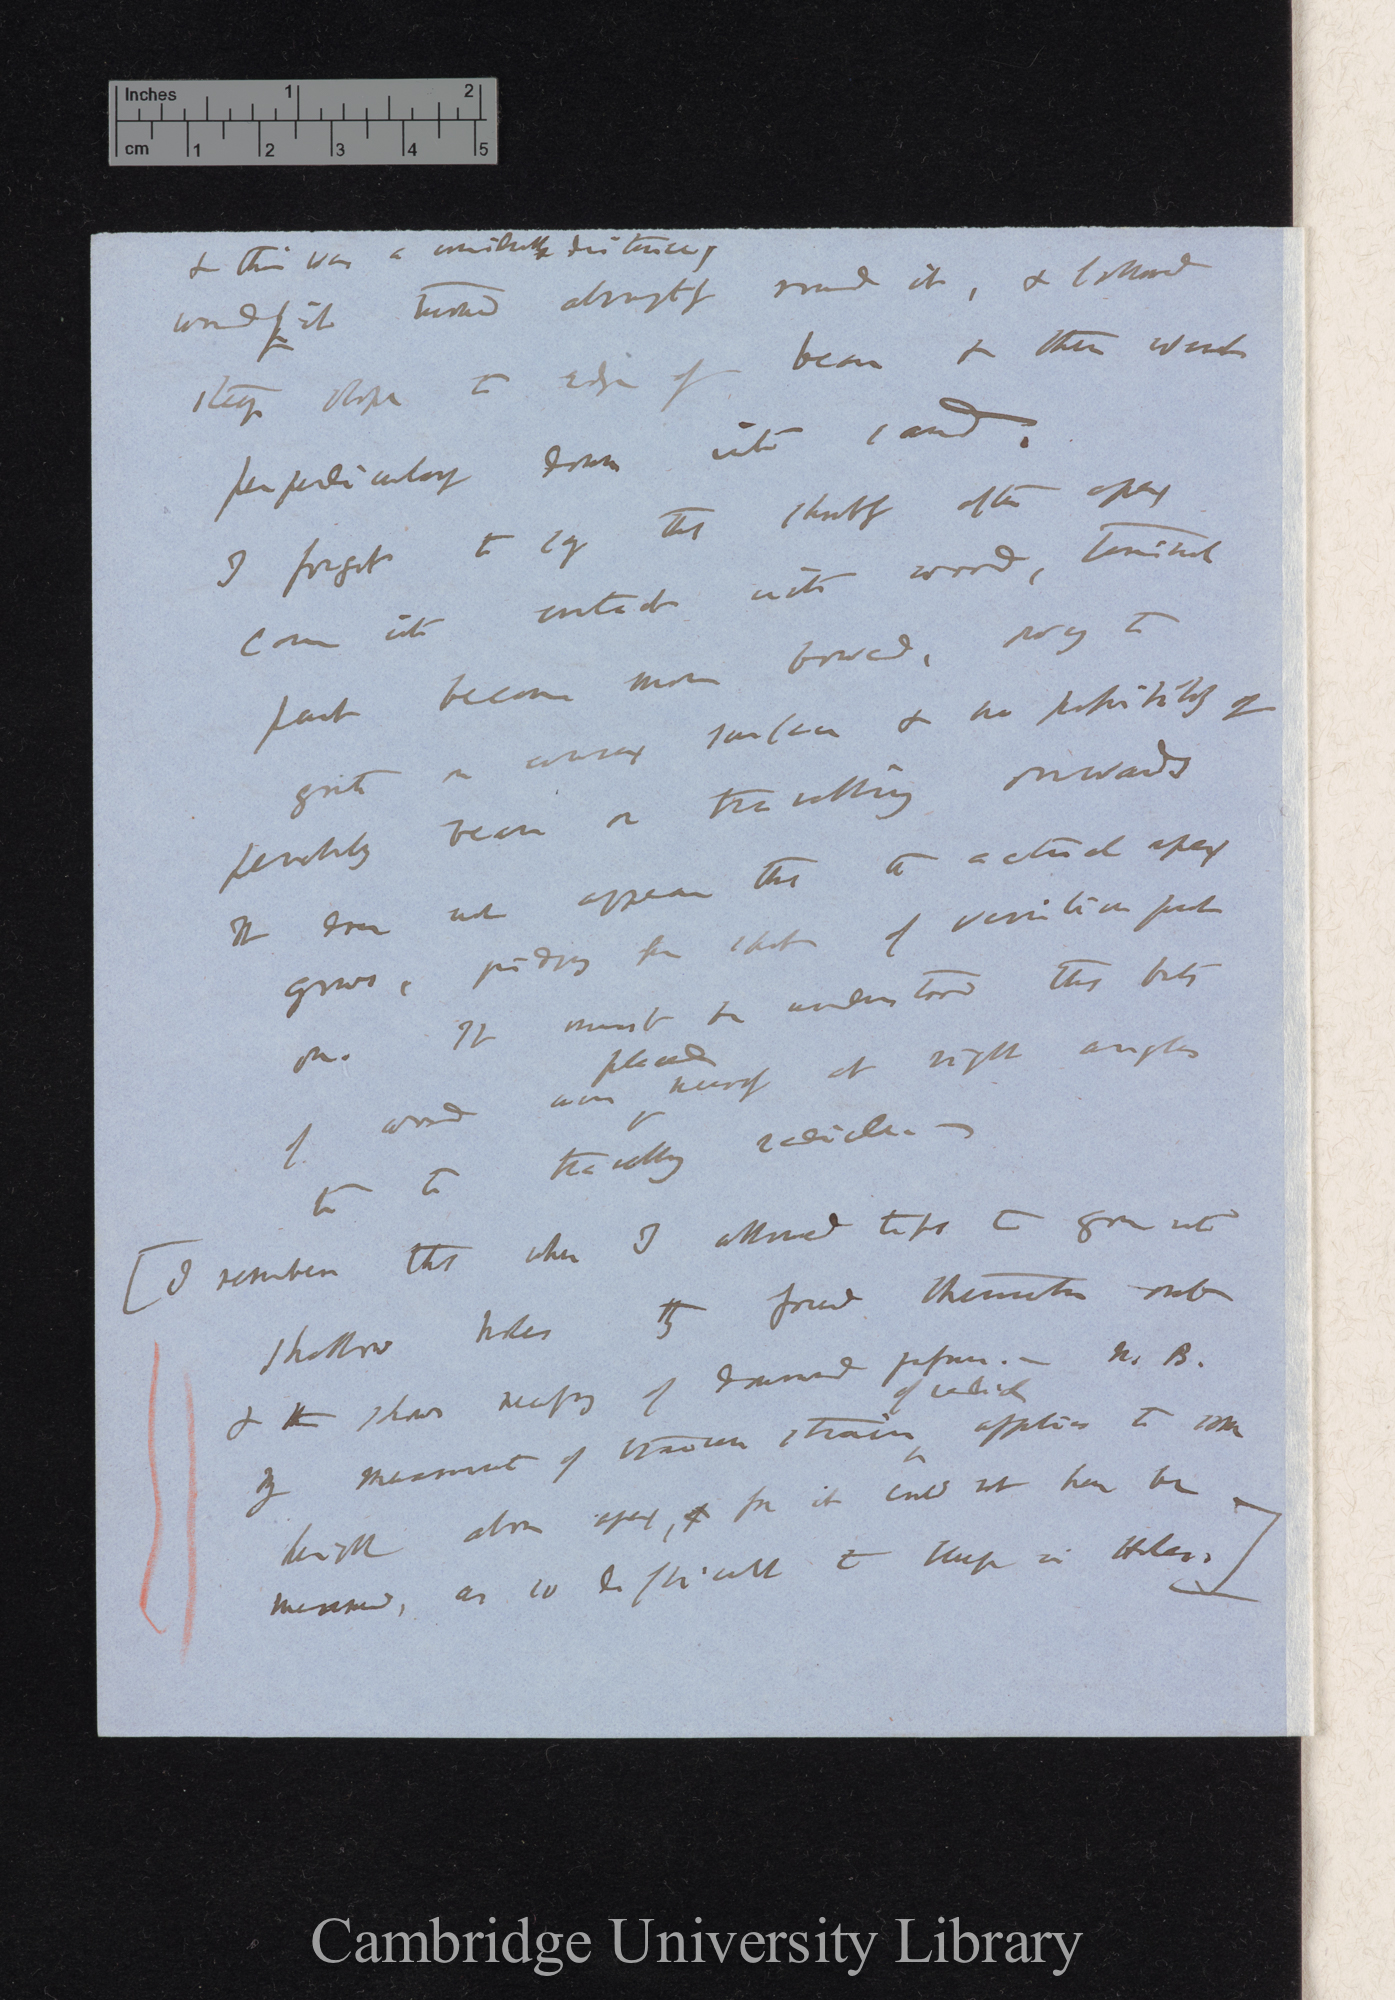 Inches 1 2
cm 1 2 3 4 5
& this was a distance,
wood, it turned abruptly round it, & followed
steep slope to edge of bean & then went
perpendicularly down into sand.
I forgot to say that shortly after apex
come into contact with wood, terminal
part became more bowed, owing to
grit on convex surface & no possibility of
bean or travelling onwards
It does not appear that the actual apex
grows, judging by of part
on. It must be understood that bits
placed
of wood were nearly at right angles
to the travelling radicle. —
[I remember that when I allowed tips to grow into
shallow holes they forced themselves out
& this shows of downward pressure. — N.B.
of radicle
My measurement of strain applies to some
height above apex, & for it could not have been
measured, as so difficult to keep in Holes.]
Cambridge University Library